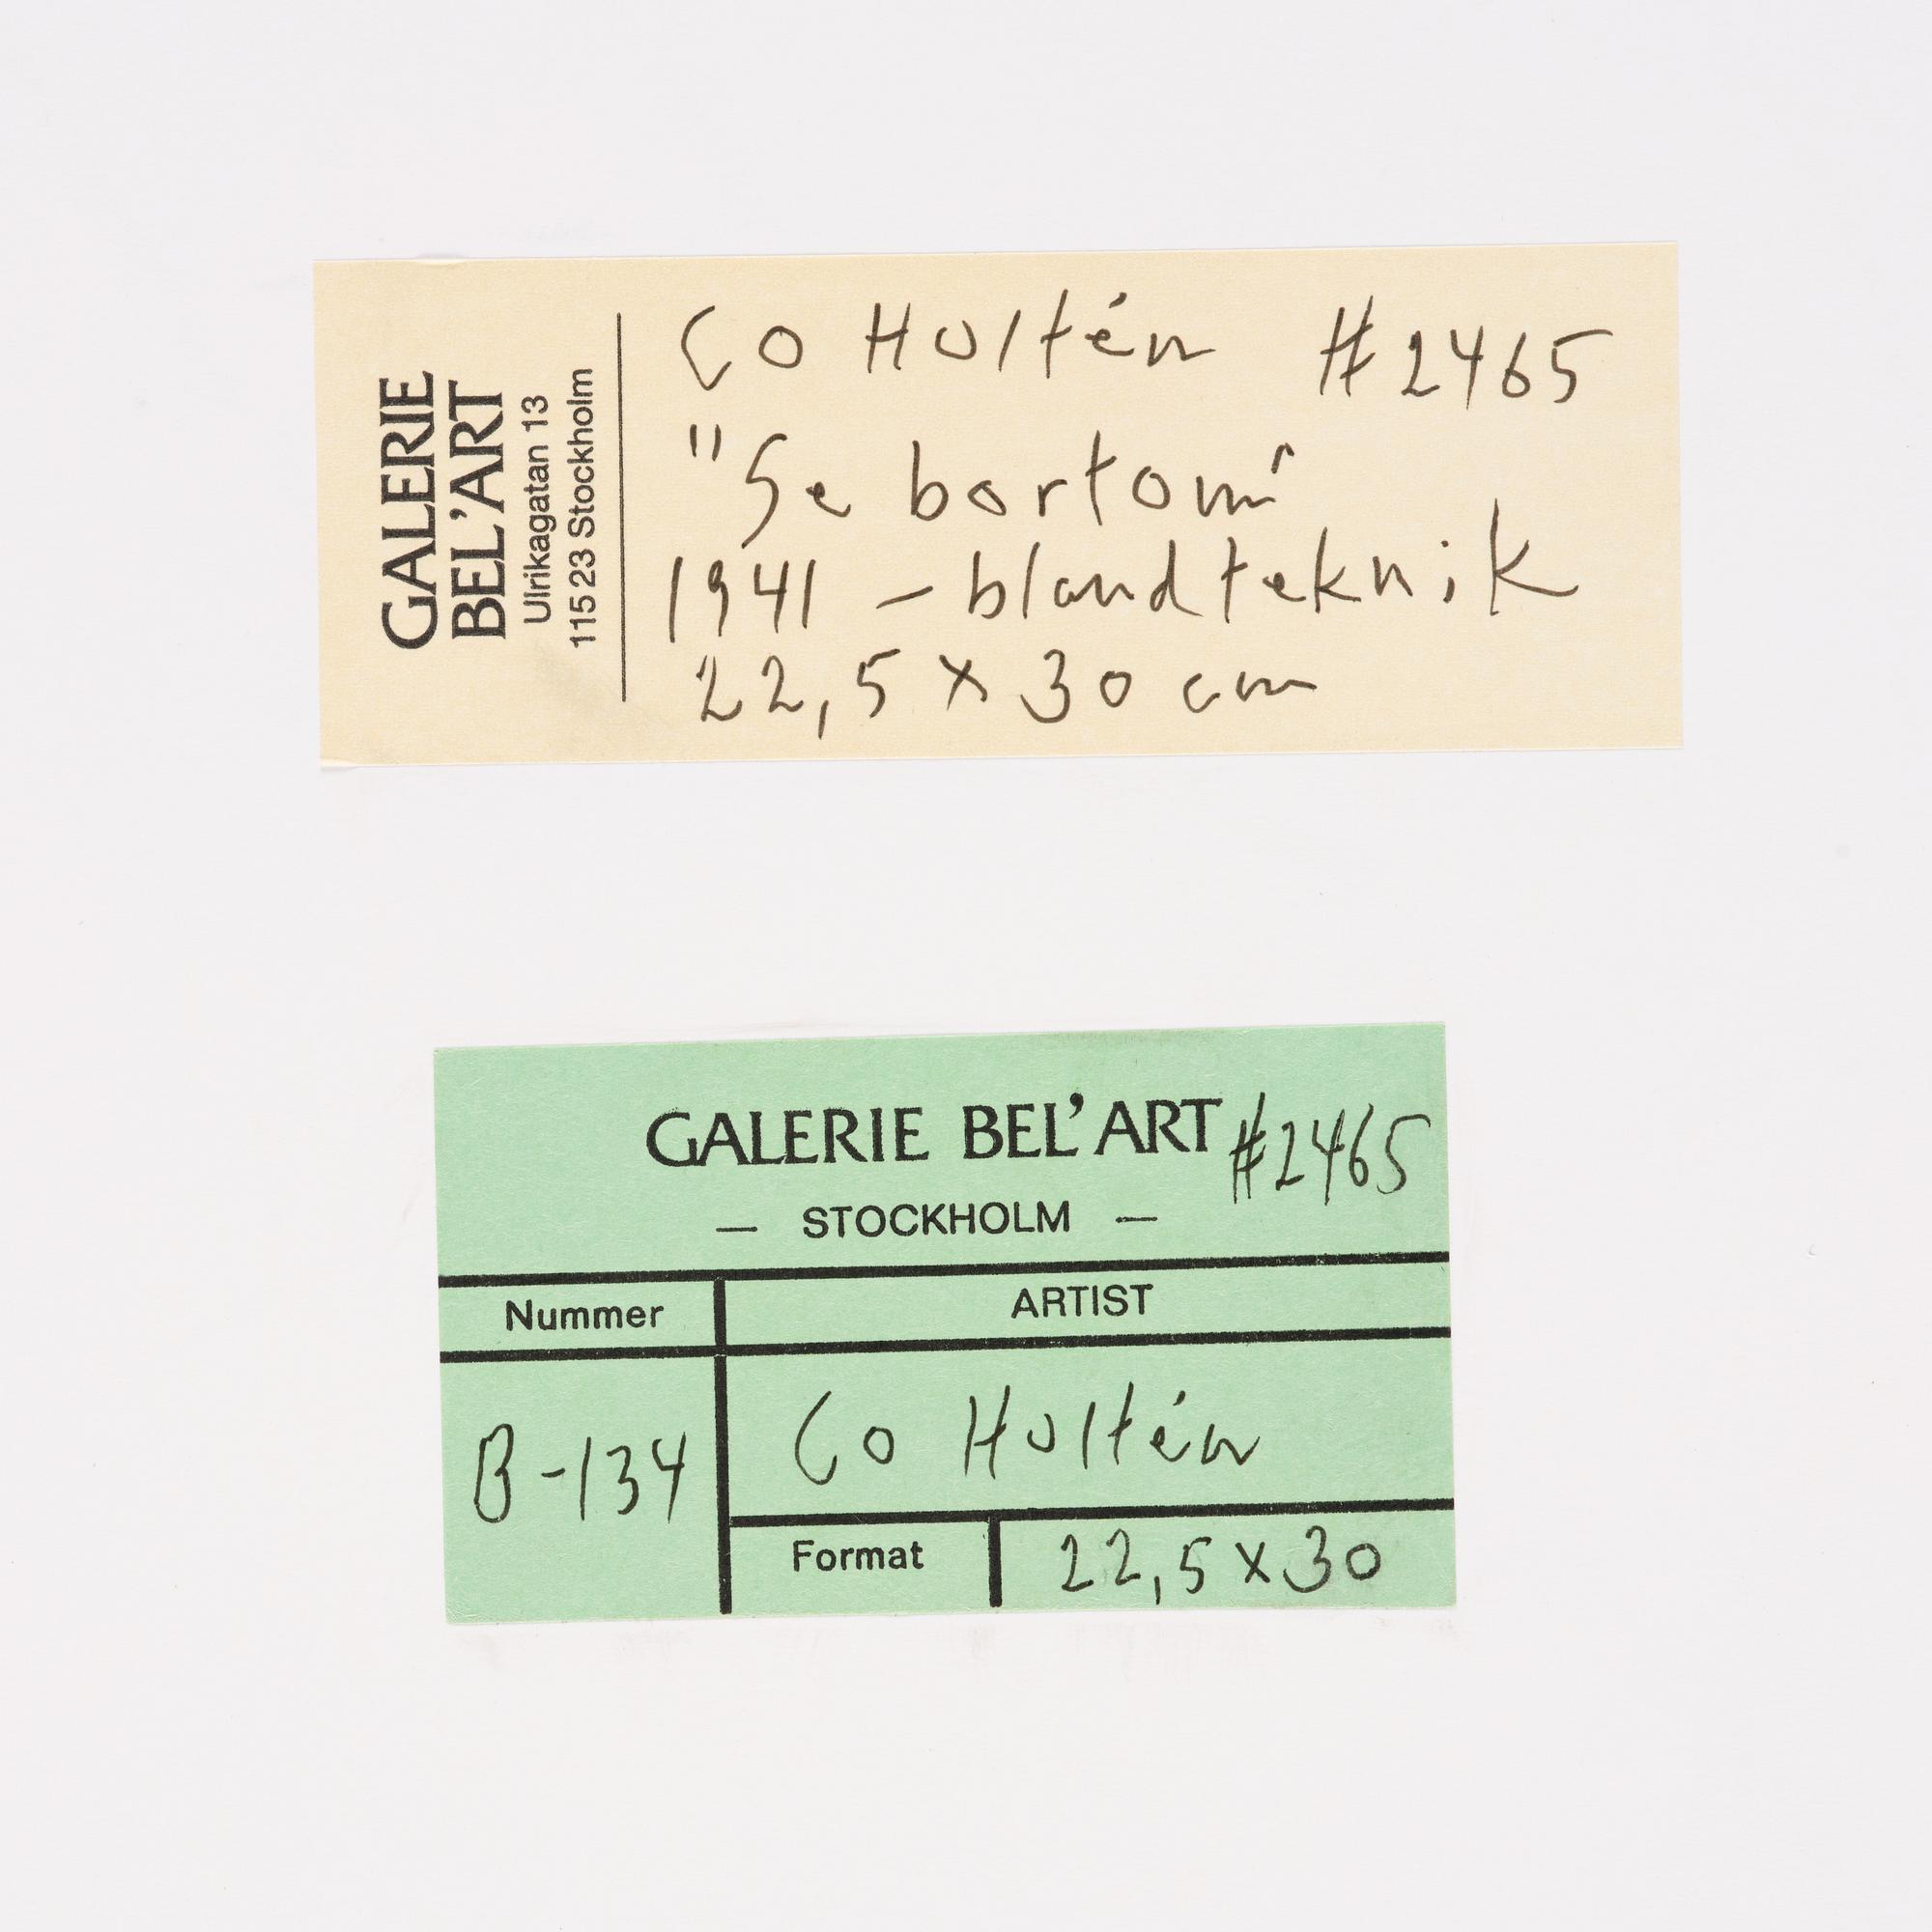 GALERIE
BEL'ART
Ulrikagatan 13
115 23 Stockholm
CO Hultén #2465
"Se bortom"
1941 - blandteknik
22,5 x 30 cm
GALERIE BEL'ART #2465
— STOCKHOLM —
Nummer ARTIST
B-134 CO Hultén
Format 22,5 x 30